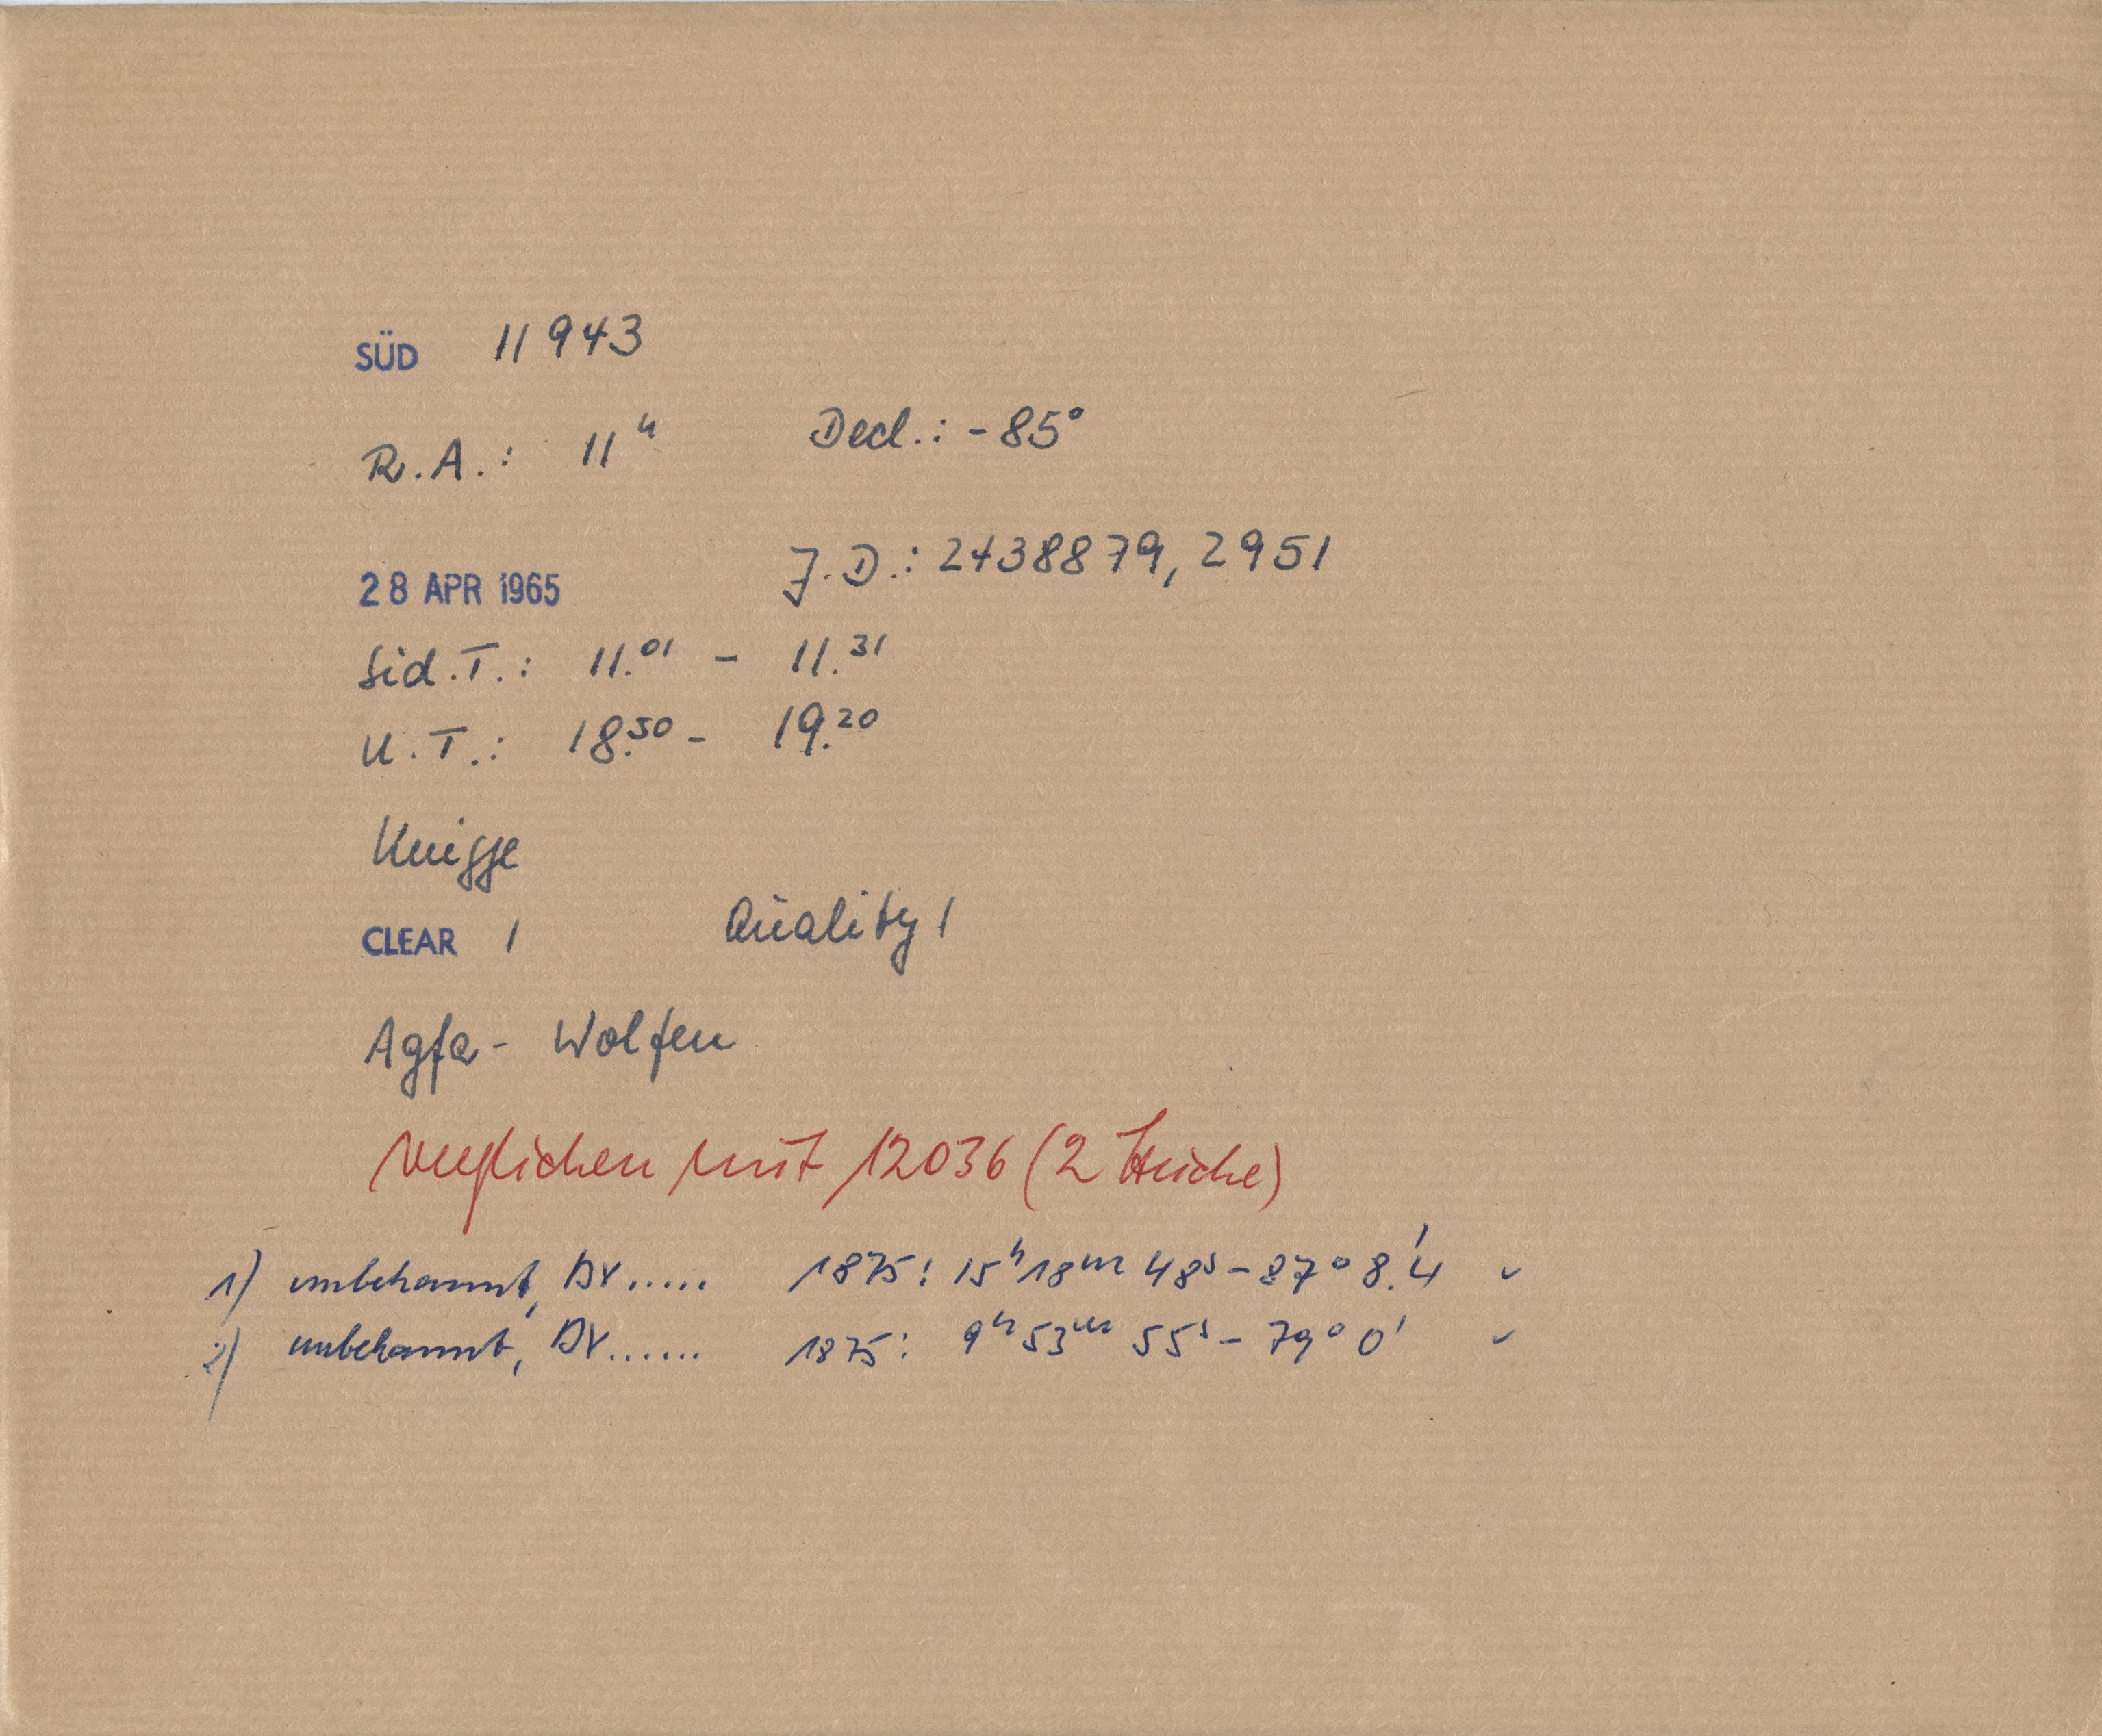 SÜD 11943
R.A.: 11ʰ Decl.: -85°
28 APR 1965 J.D.: 2438879,2951
Sid.T.: 11.⁰¹ - 11.³¹
U.T.: 18.⁵⁰ - 19.²⁰
Knigge
CLEAR 1 Quality 1
Agfa - Wolfen
verglichen mit 12036 (2 Striche)
1) unbekannt, BV..... 1875: 15ʰ18ᵐ 48ˢ - 87° 8.'4 ✓
2) unbekannt, BV...... 1875: 9ʰ53ᵐ 55ˢ - 79° 0' ✓